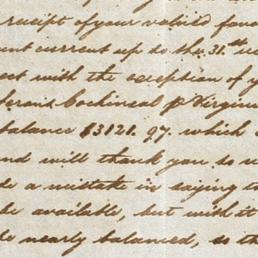 receipt of your valued favo
ent current up to the 31st
ect with the exception of y
Cochineal p Virginu
balance $3121.97. which
nd will thank you so
de a mistake in saying t
be available, but with it
be nearly balanced, so th